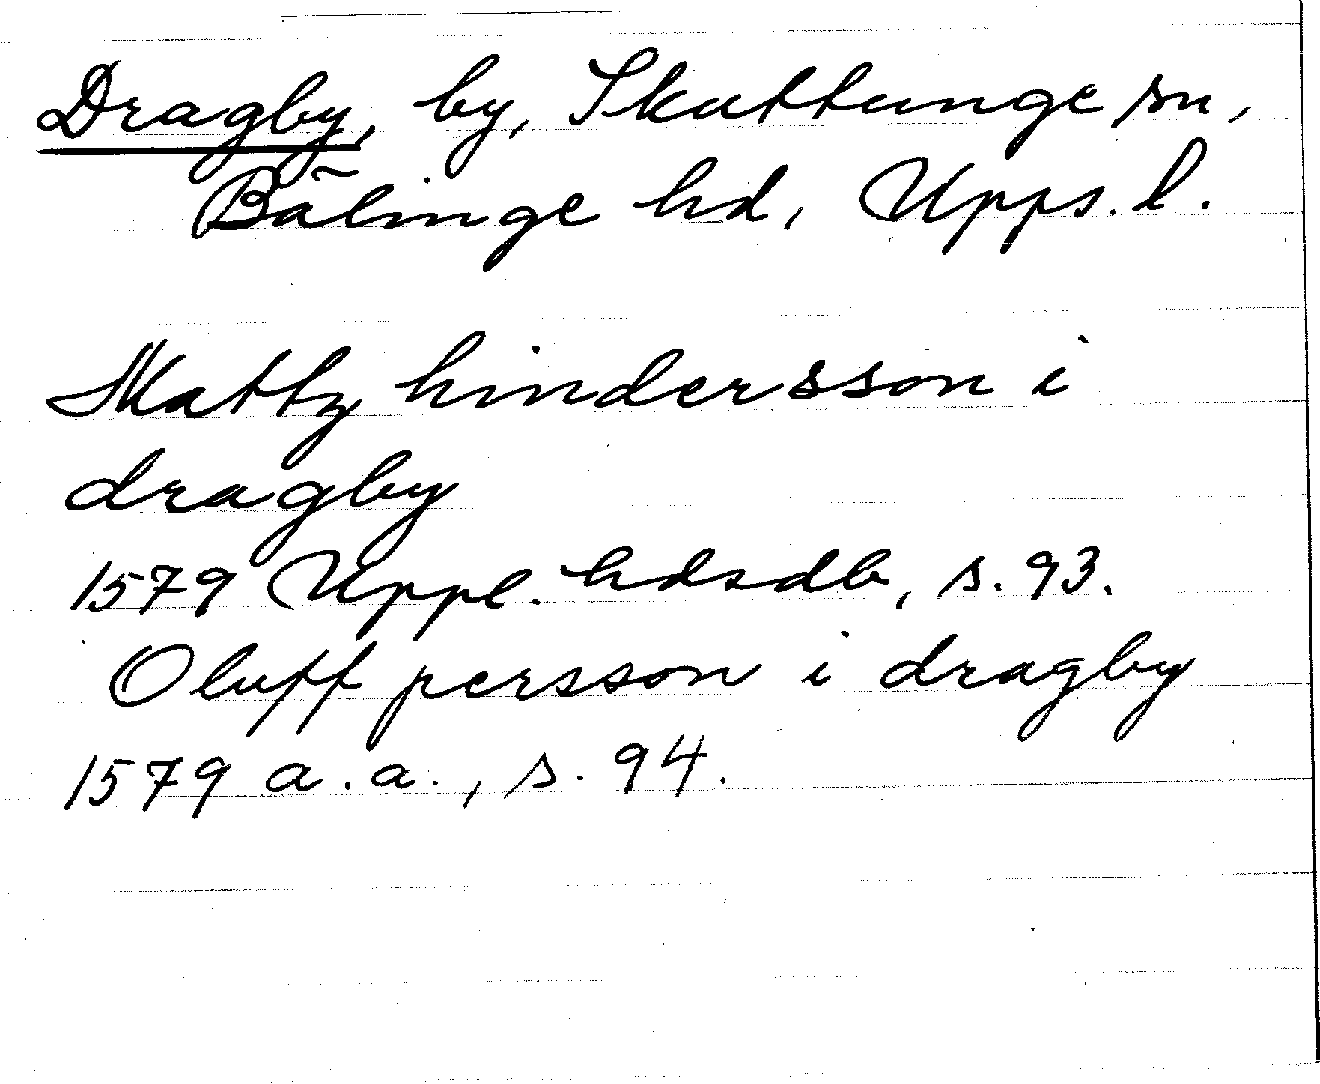 Dragby, by, Skuttunge sn,
Bälinge hd, Upps. l.
Mattz hindersson i
dragby
1579 Uppl. hdsdb, s. 93.
Oluff persson i dragby
1579 a.a., s. 94.